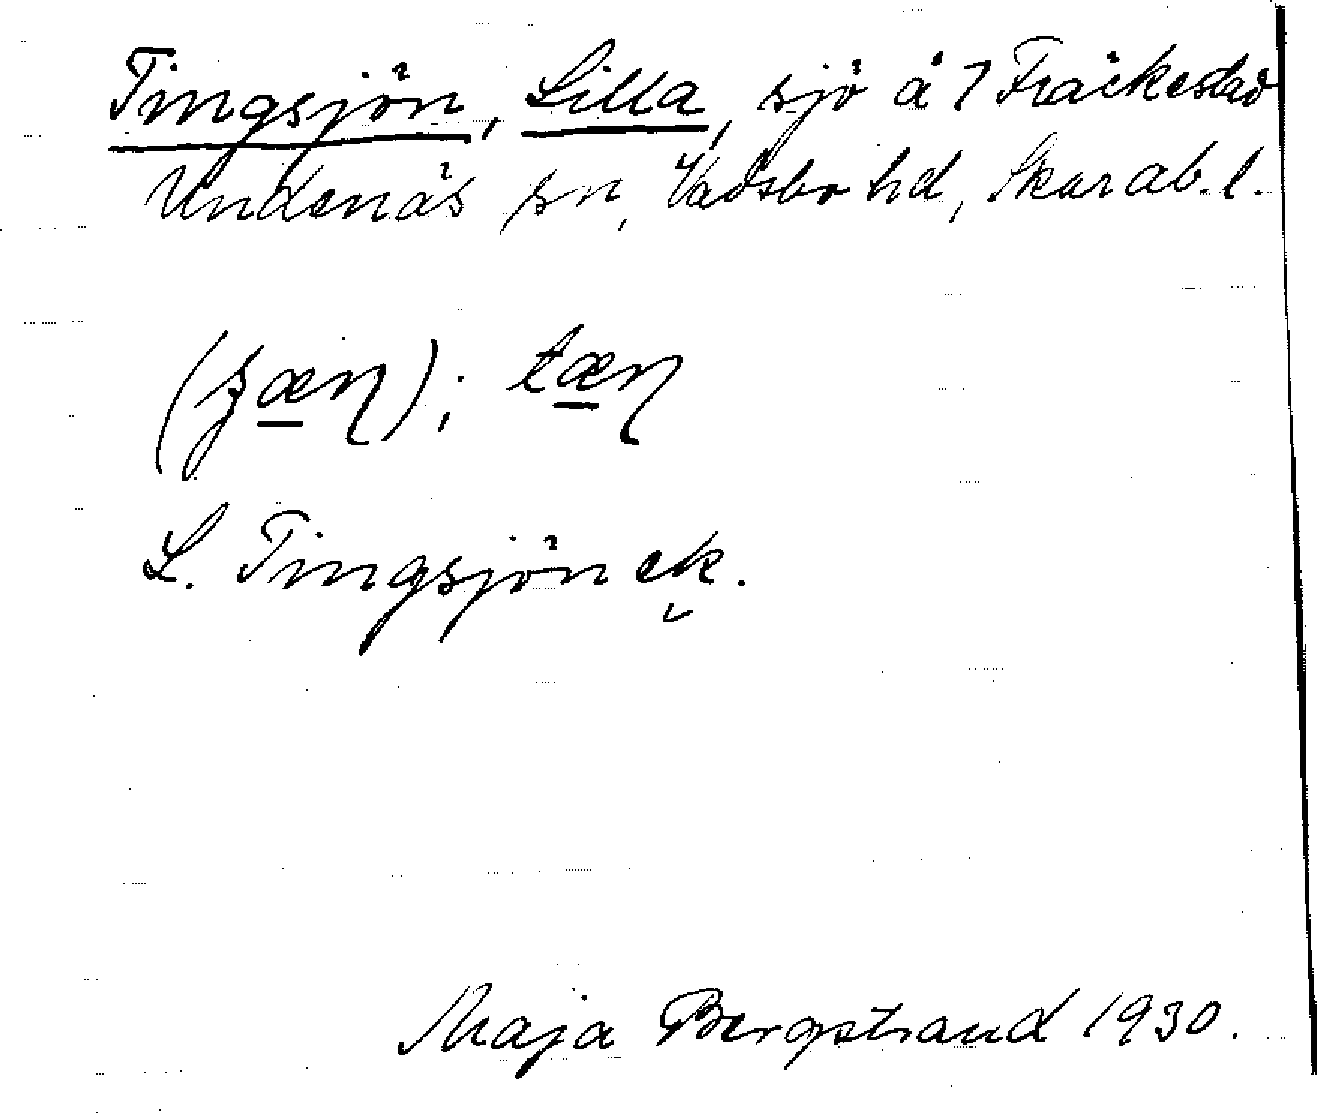 Tingsjön, Lilla, sjö å 7 Fräckestad
Undenäs sn, Vadsbo hd, Skarab. l.
(ʒæŋ); tæŋ
L. Tingsjön ek.
Maja Bergstrand 1930.